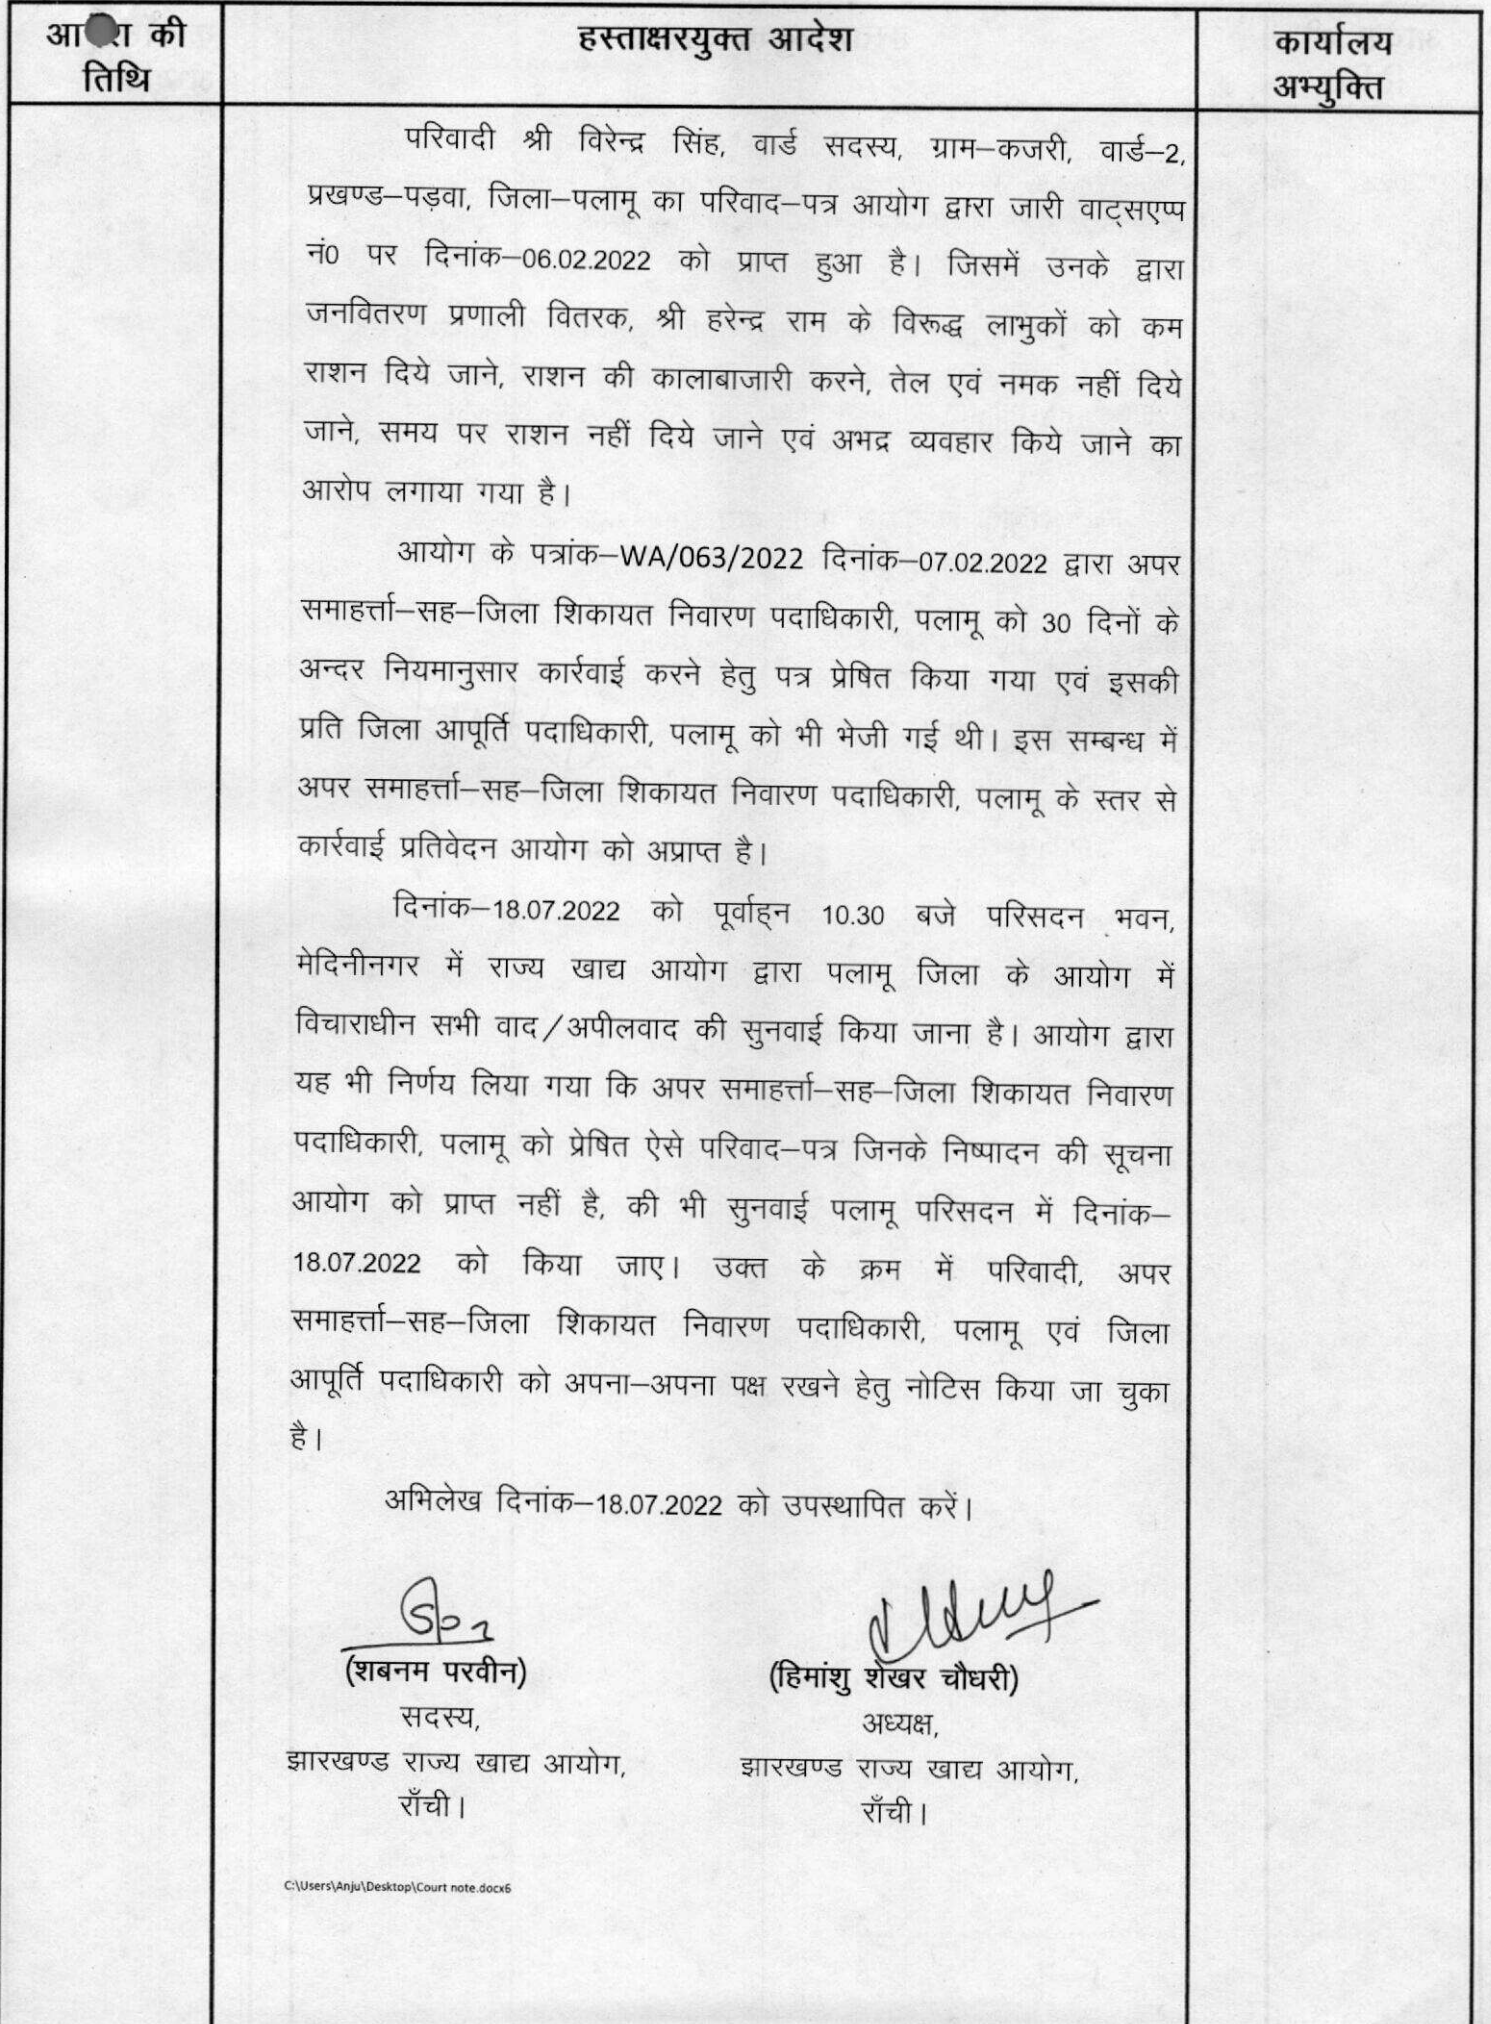 आदेश की
तिथि
हस्ताक्षरयुक्त आदेश
कार्यालय
अभ्युक्ति
परिवादी श्री विरेन्द्र सिंह, वार्ड सदस्य, ग्राम–कजरी, वार्ड–2,
प्रखण्ड–पड़वा, जिला–पलामू का परिवाद–पत्र आयोग द्वारा जारी वाट्सएप्प
नं0 पर दिनांक–06.02.2022 को प्राप्त हुआ है। जिसमें उनके द्वारा
जनवितरण प्रणाली वितरक, श्री हरेन्द्र राम के विरूद्ध लाभुकों को कम
राशन दिये जाने, राशन की कालाबाजारी करने, तेल एवं नमक नहीं दिये
जाने, समय पर राशन नहीं दिये जाने एवं अभद्र व्यवहार किये जाने का
आरोप लगाया गया है।
आयोग के पत्रांक–WA/063/2022 दिनांक–07.02.2022 द्वारा अपर
समाहर्त्ता–सह–जिला शिकायत निवारण पदाधिकारी, पलामू को 30 दिनों के
अन्दर नियमानुसार कार्रवाई करने हेतु पत्र प्रेषित किया गया एवं इसकी
प्रति जिला आपूर्ति पदाधिकारी, पलामू को भी भेजी गई थी। इस सम्बन्ध में
अपर समाहर्त्ता–सह–जिला शिकायत निवारण पदाधिकारी, पलामू के स्तर से
कार्रवाई प्रतिवेदन आयोग को अप्राप्त है।
दिनांक–18.07.2022 को पूर्वाह्न 10.30 बजे परिसदन भवन,
मेदिनीनगर में राज्य खाद्य आयोग द्वारा पलामू जिला के आयोग में
विचाराधीन सभी वाद/अपीलवाद की सुनवाई किया जाना है। आयोग द्वारा
यह भी निर्णय लिया गया कि अपर समाहर्त्ता–सह–जिला शिकायत निवारण
पदाधिकारी, पलामू को प्रेषित ऐसे परिवाद–पत्र जिनके निष्पादन की सूचना
आयोग को प्राप्त नहीं है, की भी सुनवाई पलामू परिसदन में दिनांक–
18.07.2022 को किया जाए। उक्त के क्रम में परिवादी, अपर
समाहर्त्ता–सह–जिला शिकायत निवारण पदाधिकारी, पलामू एवं जिला
आपूर्ति पदाधिकारी को अपना–अपना पक्ष रखने हेतु नोटिस किया जा चुका
है।
अभिलेख दिनांक–18.07.2022 को उपस्थापित करें।
(शबनम परवीन)
सदस्य,
झारखण्ड राज्य खाद्य आयोग,
राँची।
(हिमांशु शेखर चौधरी)
अध्यक्ष,
झारखण्ड राज्य खाद्य आयोग,
राँची।
C:\Users\Anju\Desktop\Court note.docx6